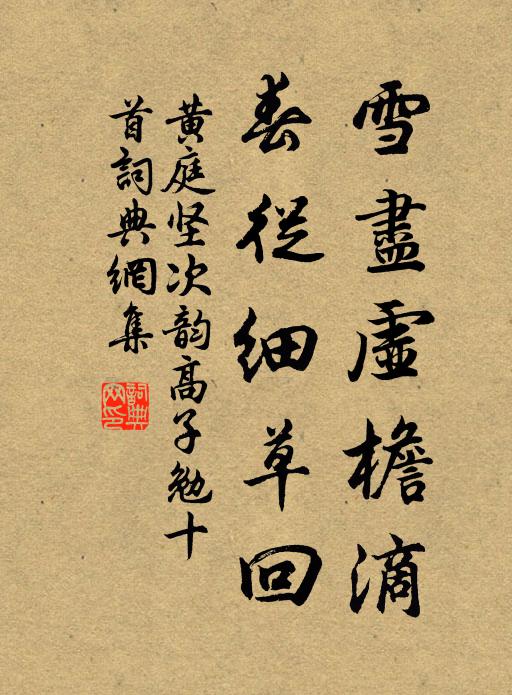 雪盡虛檐滴
春從細草回
黄庭坚次韵高子勉十
首詞典網集
詞典
网印